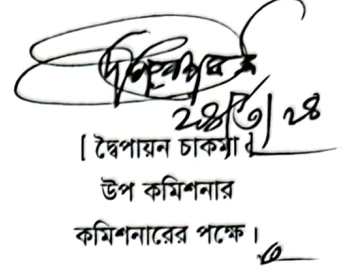 ২৪/৩/২৪
[ দ্বৈপায়ন চাকমা ]
উপ কমিশনার
কমিশনারের পক্ষে।